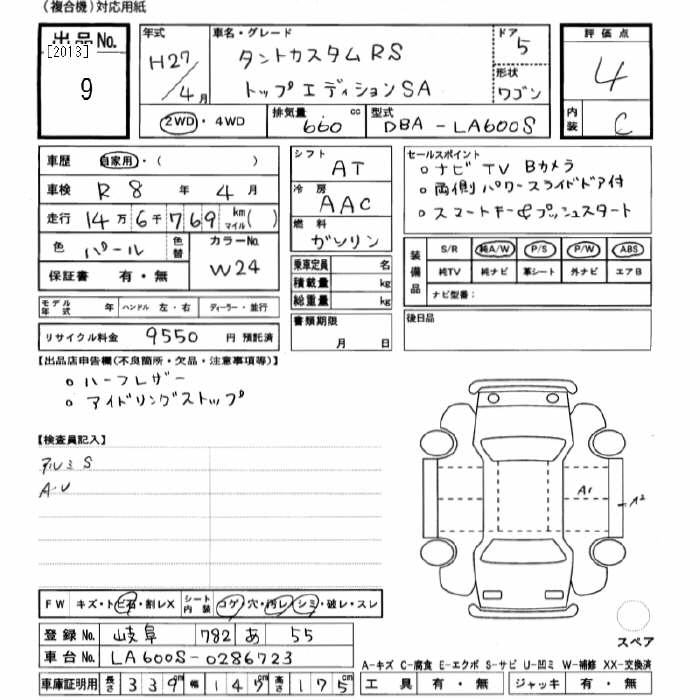 (複合機)対応用紙
出品No. [2013] 9
年式 H27/4月
車名・グレード タントカスタムRS
トップエディションSA
ドア 5
形状 ワゴン
評価点 4
内装 C
2WD・4WD
排気量 660 cc
型式 DBA-LA600S
車歴 自家用・( )
車検 R8年4月
走行 14万6千769 km マイル( )
色 パール 色替
カラーNo. W24
保証書 有・無
モデル年式 年 ハンドル 左・右 ディーラー・並行
リサイクル料金 9550 円 預託済
シフト AT
冷房 AAC
燃料 ガソリン
乗車定員 名
積載量 kg
総重量 kg
書類期限
月 日
セールスポイント
○ナビ TV Bカメラ
○両側パワースライドドア付
○スマートキー&プッシュスタート
装備品 S/R 純A/W P/S P/W ABS
純TV 純ナビ 革シート 外ナビ エアB
ナビ型番:
後日品
【出品店申告欄(不良箇所・欠品・注意事項等)】
○ハーフレザー
○アイドリングストップ
【検査員記入】
アルミ S
A・U
A1
A2
FW キズ・トビ石・割レX シート内装 コゲ・穴・汚レ・シミ・破レ・スレ
登録No. 岐阜 782 あ 55
車台No. LA600S-0286723
車庫証明用 長さ 339cm 幅 147cm 高さ 175cm
スペア
A-キズ C-腐食 E-エクボ S-サビ U-凹ミ W-補修 XX-交換済
工具 有・無 ジャッキ 有・無